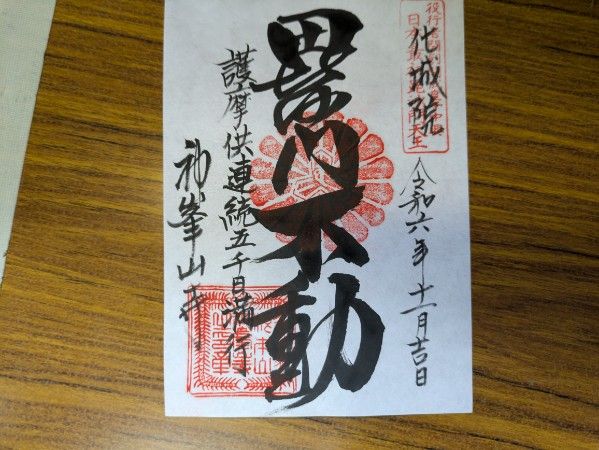 化城院
令和六年十一月吉日
毘沙門不動
護摩供連続五千日満行
神峯山寺